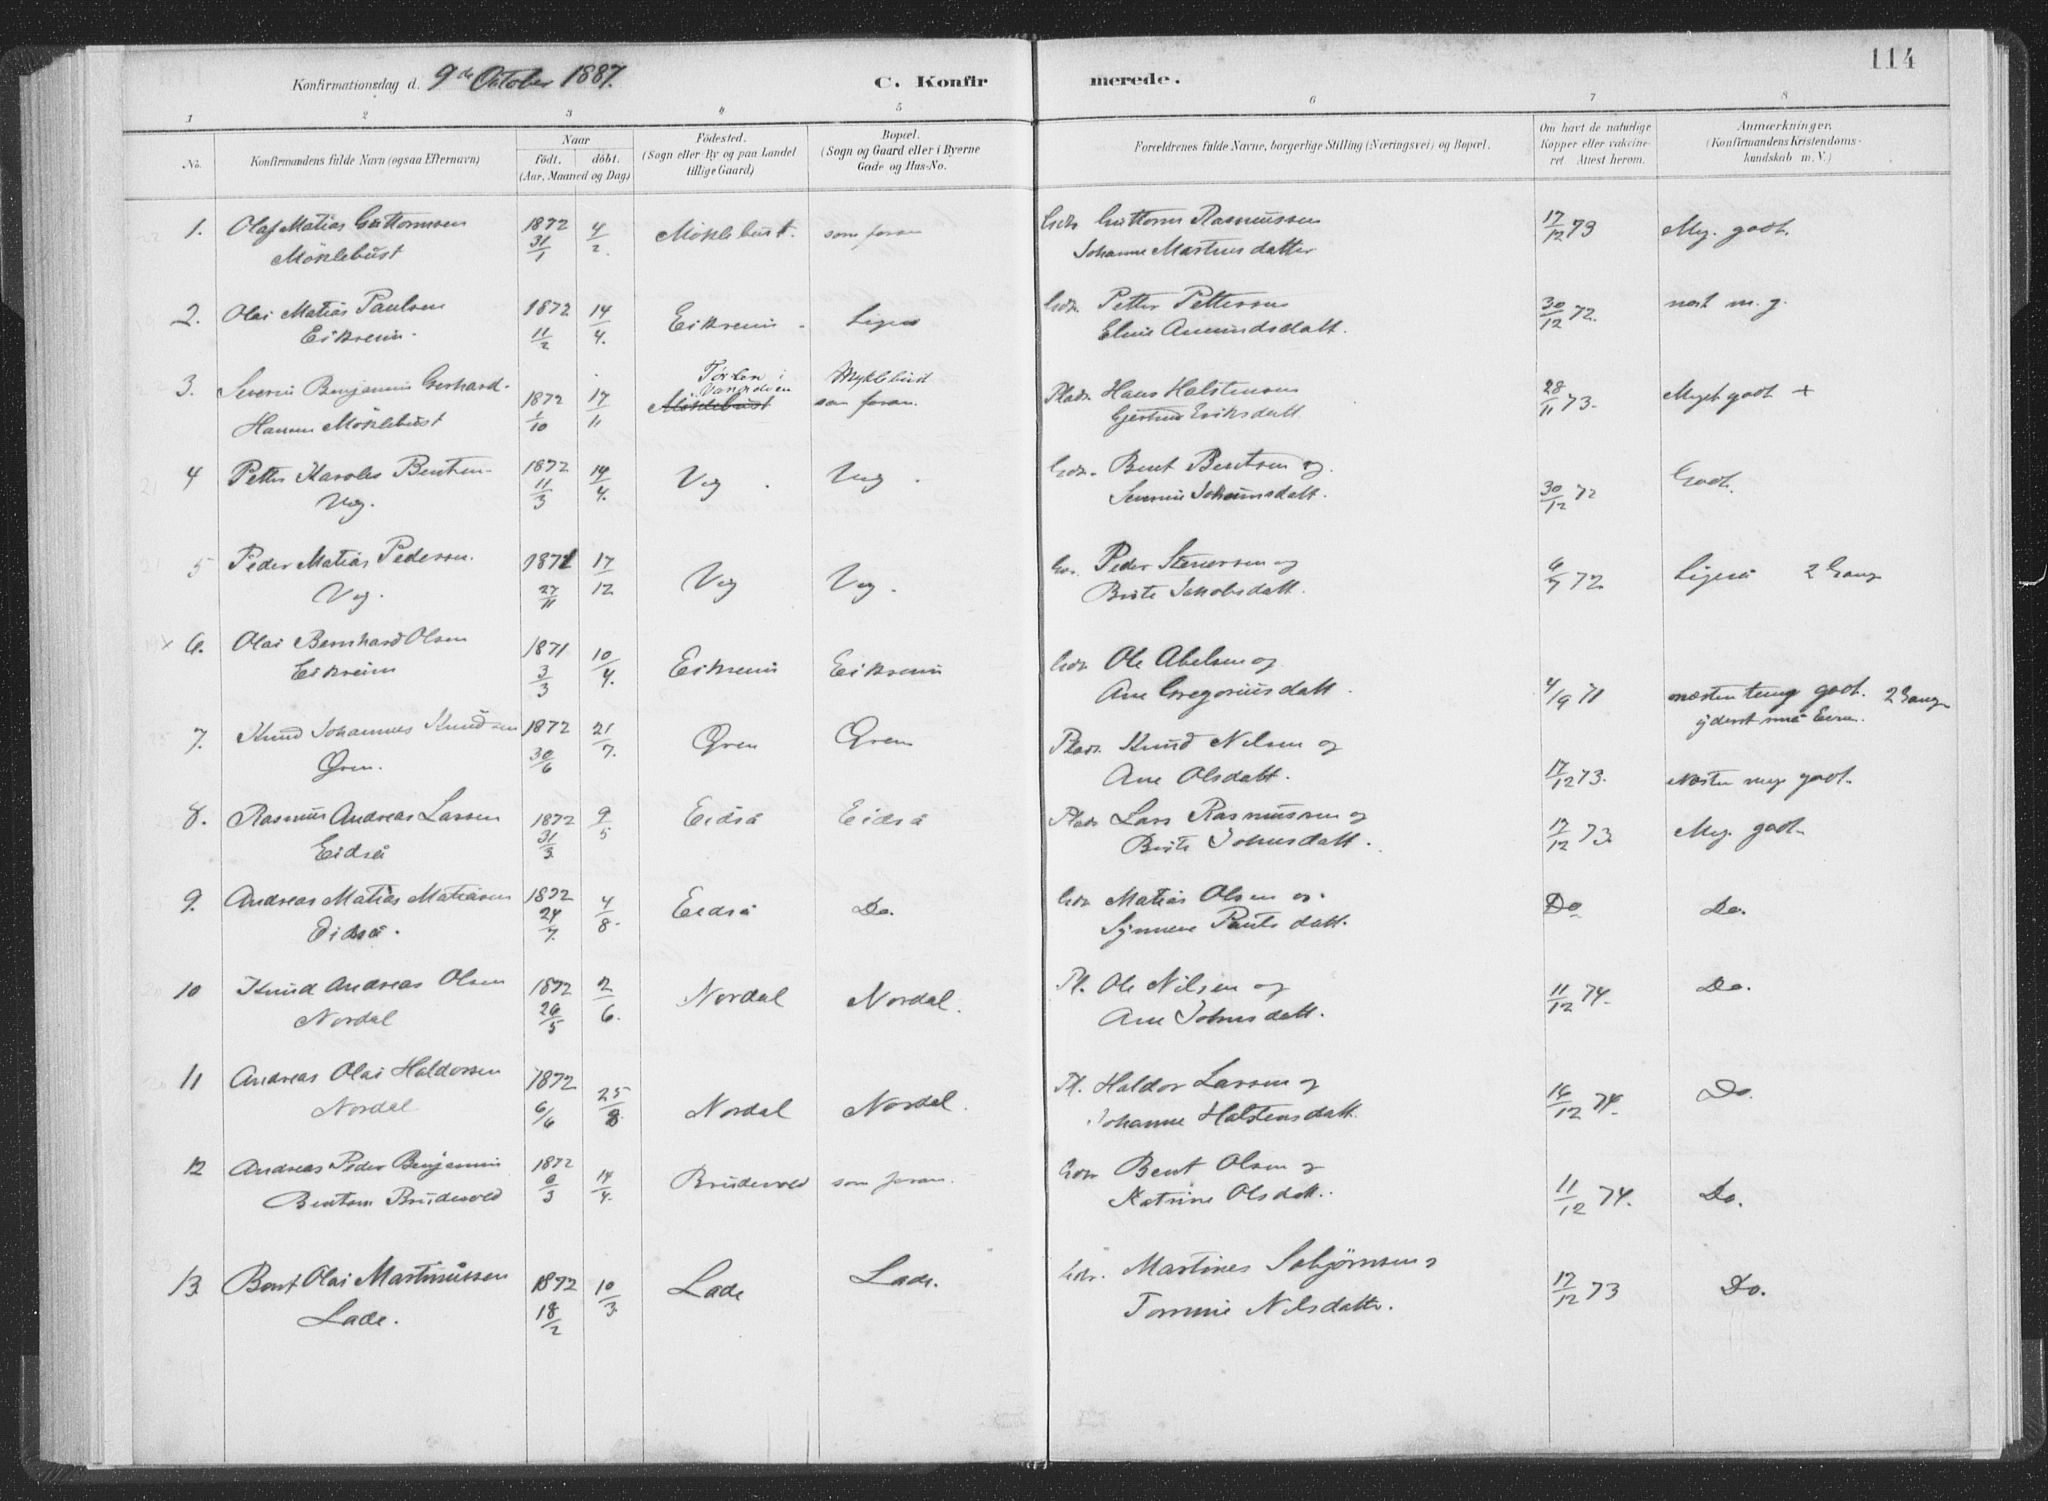 114
Konfirmationsdag d. 9de Oktober 1887. C. Konfirmerede.
1 2 3 4 5 6 7 8
No. Konfirmandens fulde Navn (ogsaa Efternavn) Naar født. døbt. (Aar, Maaned og Dag) Fødested. (Sogn eller By og paa Landet tillige Gaard) Bopæl. (Sogn og Gaard eller i Byerne Gade og Hus-No. Forældrenes fulde Navne, borgerlige Stilling (Næringsvei) og Bopæl. Om havt de naturlige Kopper eller vakcineret. Attest herom. Anmærkninger. (Konfirmandens Kristendomskundskab m. V.)
1. Olaf Matias Guttormsen 1872 4/2 Möklebust. som foran Gdr. Guttorm Rasmussen 17/12 73 Meg. godt.
Möklebust 31/1 Johanne Martinusdatter
2. Olai Matias Paulsen 1872 14/4. Eikrem Ligeså Gdr. Petter Pettersen 30/12 72. næst m. g.
Eikrem. 11/2 Eline Amundsdatt.
3. Severin Benjamin Gerhard Vanelven Myklebust
1872 17/11 Möklebust som foran. Pladr. Hans Halstensen 28/11 73. Meget godt +
Hansen Möklebust 1/10 Gjertrud Eriksdatt
4 Petter Karolus Bentsen 1872 14/4. Vog Vog. Gdr. Bent Bentsen og 30/12 72 Godt.
Vog. 11/3 Severine Johannsdatt.
5 Peder Matias Pedersen. 1871 17/12 Vog Vog. Gdr. Peder Stenersen og 6/7 72 Ligeså 2 Gang
Vog. 27/11 Brite Jakobsdatt.
× 6. Olai Bernhard Olsen 1871 10/4. Eikrem Eikrem Gdr. Ole Abelsen og
Eikrem 3/3 Ane Gregoriusdatt. 4/9 71 næsten temg godt. 2 Gang
yderst små Evner.
7. Knud Johannes Knudsen 1872 21/7. Øren Øren Pladr. Knud Nilsen og
Øren. 30/6 Ane Olsdatt. 17/12 73. Næsten meg godt.
8. Rasmus Andreas Larsen 1872 9/5 Eidså Eidså Pladr. Lars Rasmussen og 17/12 73. Meg. godt.
Eidså 31/3 Brite Johnsdatt.
9. Andreas Matias Matiasen 1872 4/8. Eidså Do. Gdr. Matias Olsen og. Do Do.
Eidså. 24/7. Synneve Paulsdatt.
10 Knud Andreas Olsen 1872 2/6. Nordal Nordal. Pl. Ole Nilsen og 11/12 74. Do.
Nordal 26/5 Ane Johnsdatt.
11 Andreas Olai Haldorsen 1872 25/8 Nordal Nordal. Pl. Haldor Larsen og 16/12 74. Do.
Nordal 6/6 Johanne Halstensdatt.
12 Andreas Peder Benjamin 1872 14/4. Brudevold som foran. Gdr Bent Olsen og 11/12 74. Do.
Bentsen Brudevold 6/3 Katrine Olsdatt.
13. Bent Olai Martinussen 1872 10/3. Lade Lade. Gdr. Martines Asbjørnsen 17/12 73 Do.
Lade. 18/2 Tomine Nilsdatter.